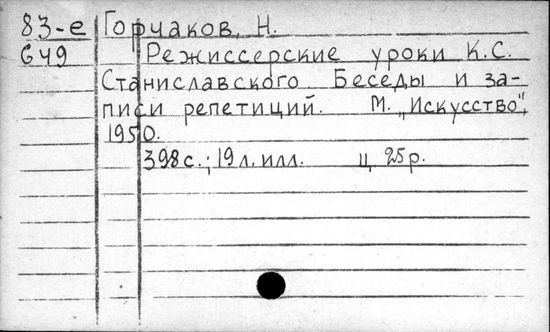 83-е Горчаков, Н.
G49 Режиссерские уроки К.С.
Станиславского Беседы и за-
писи репетиций. М. „Искусство",
1950.
398 с.; 19 л. илл. ц 25 р.